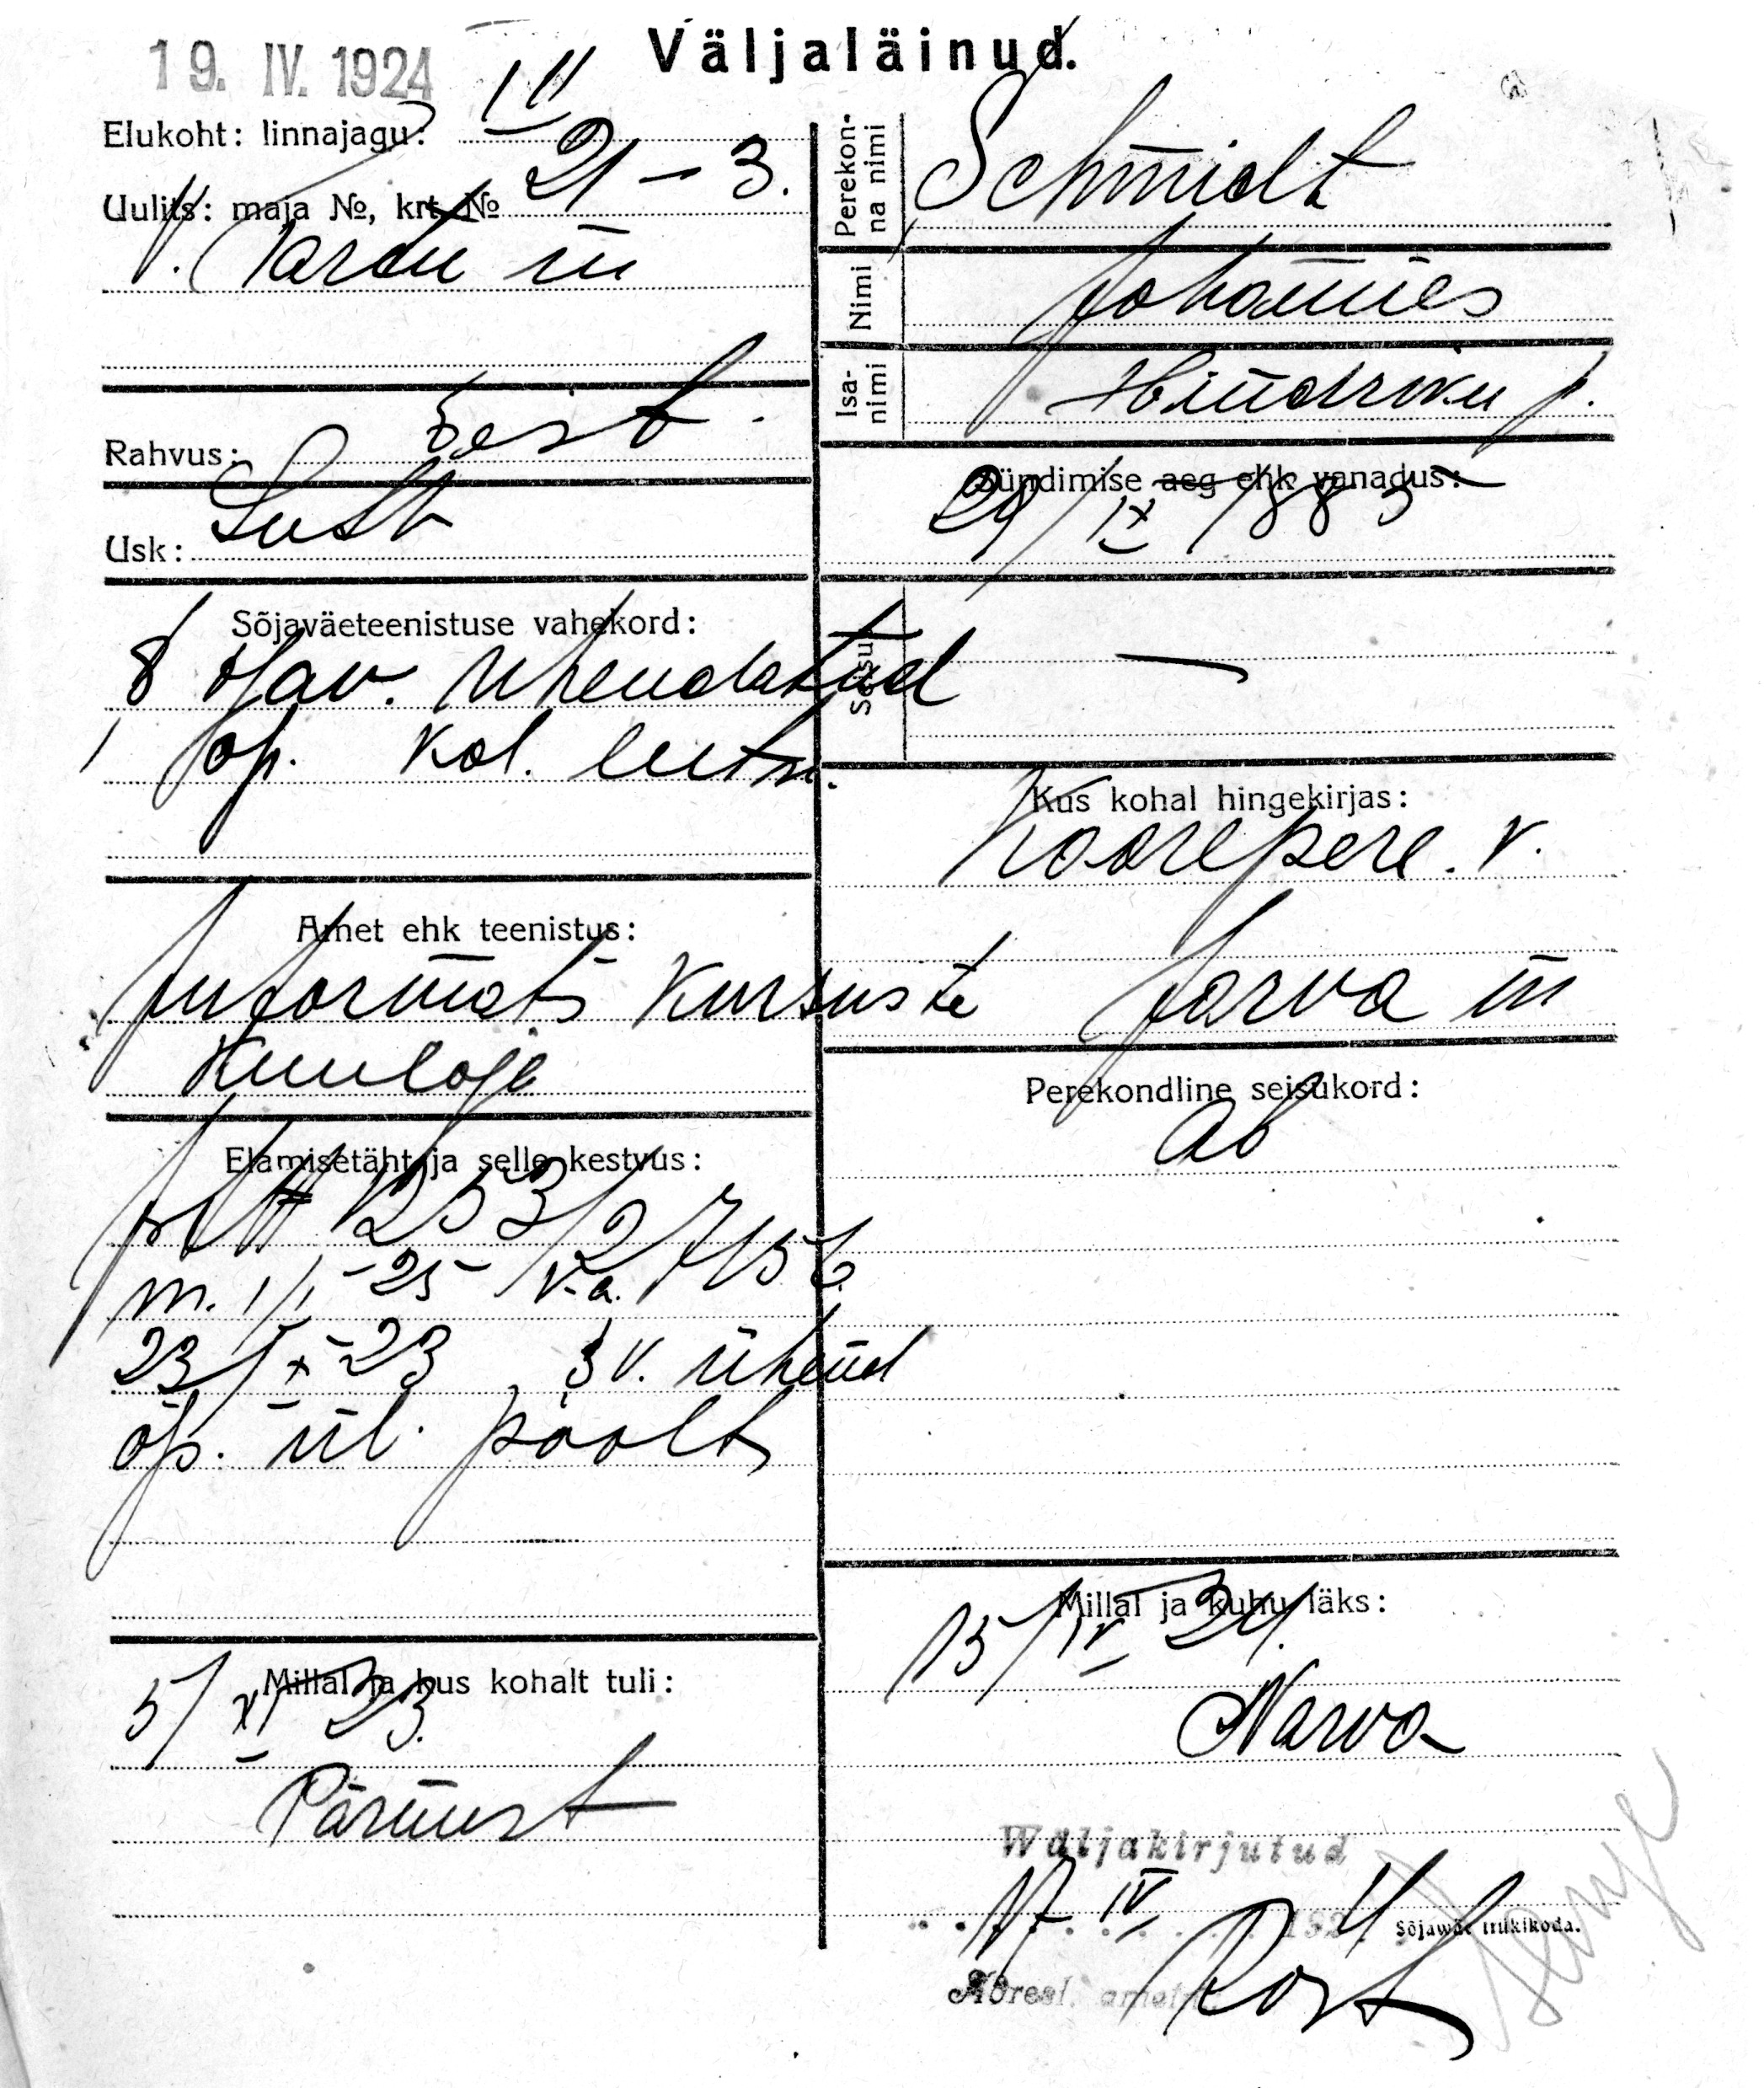 19. IV. 1924
Väljaläinud.
Elukoht: linnajagu: III
Uulits: maja №, krt. № 21 – 3.
V. Tartu m
Rahvus: Eest.
Usk: Luth
Sõjaväeteenistuse vahekord:
Ühendatud
õp. kol. leitn.
Amet ehk teenistus:
Informats kursuste
kuulaja
Elamisetäht ja selle kestvus:
№ 1253/27156
m. 1/I - 25 v.a.
23/X - 23 s v. ühend
õp. ül. poolt
Millal ja kus kohalt tuli:
5/XI 23.
Pärnust
Perekonna nimi Schmidt
Nimi Johannes
Isanimi Hindriku p.
Sündimise aeg ehk vanadus:
29/IX 1883
Seisus —
Kus kohal hingekirjas:
Koorepere. v.
Järva m
Perekondline seisukord:
ab
Millal ja kuhu läks:
15/IV 24.
Narva
Wäljakirjutud
17. IV 192 4
Sõjawäe trükikoda.
Adressl. ametn. Rost